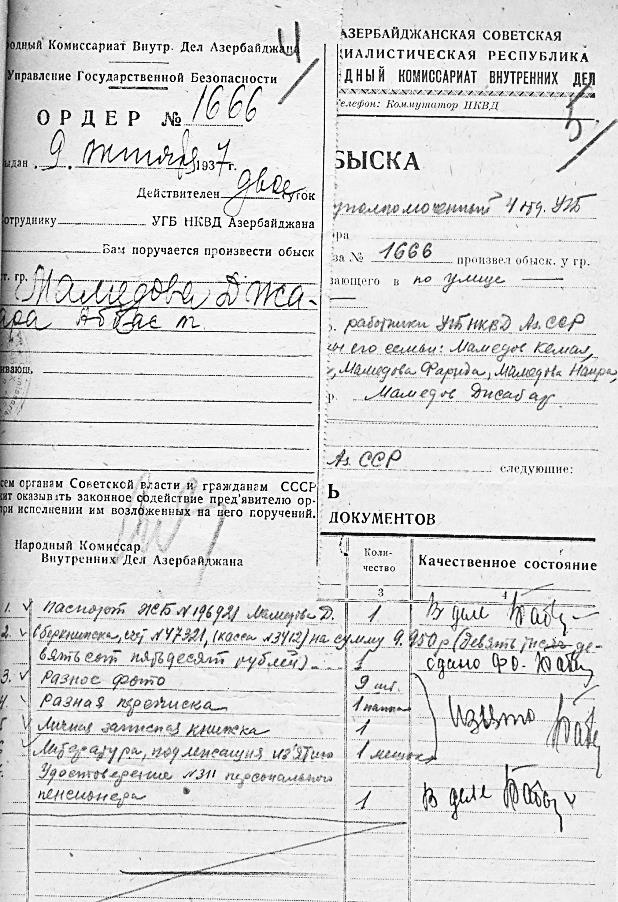 родный Комиссариат Внутр. Дел Азербайджана
4
Управление Государственной Безопасности
ОРДЕР № 1666
ыдан „9 октября 1937 г.
Действителен двое суток
отруднику УГБ НКВД Азербайджана
Вам поручается произвести обыск
ст. гр. Мамедова Джа-
фара Аббас
ивающ.
сем органам Советской власти и гражданам СССР
жит оказывать законное содействие пред'явителю ор-
при исполнении им возложенных на него поручений.
Народный Комиссар
Внутренних Дел Азербайджана
АЗЕРБАЙДЖАНСКАЯ СОВЕТСКАЯ
ЦИАЛИСТИЧЕСКАЯ РЕСПУБЛИКА
ДНЫЙ КОМИССАРИАТ ВНУТРЕННИХ ДЕЛ
Телефон: Коммутатор НКВД
5
БЫСКА
уполномоченный 4 отд. УГБ
ра
за № 1666 произвел обыск. у гр.
вающего в по улице
работники УГБ НКВД Аз. ССР
его семьи: Мамедов Кемал,
Мамедова Фарида, Мамедова Наира,
р. Мамедов
Аз. ССР следующие:
Ь
ДОКУМЕНТОВ
Коли-
чество
Качественное состояние
3
4
1. Паспорт № 196921 Мамедова Д. 1 В деле
2. Сберкнижка, счет № 47321, (касса № 3412) на сумму 9.950 р (Девять тысяч де-
вятьсот пятьдесят рублей) 1 сдано ФО.
3. Разное фото 9 шт.
4. Разная переписка 1 папка изъято
5 Личная записная книжка 1
6 Литература, подлежащая из'ятию 1 мешок
Удостоверение № 311 персонального
пенсионера 1 В деле